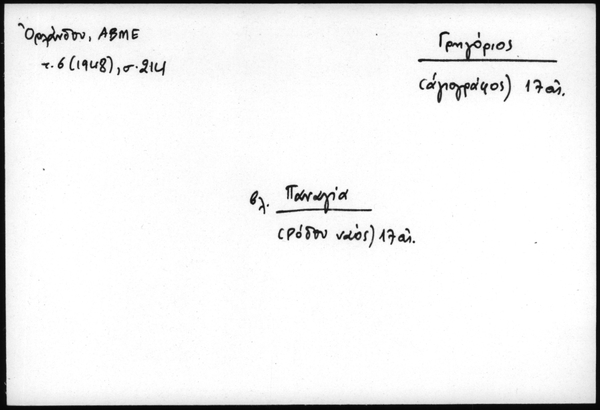 Ὀρλάνδου, ΑΒΜΕ
τ.6 (1948), σ.214
Γρηγόριος
(ἁγιογράφος) 17 αἰ.
βλ. Παναγία
(Ρόδου ναός) 17 αἰ.